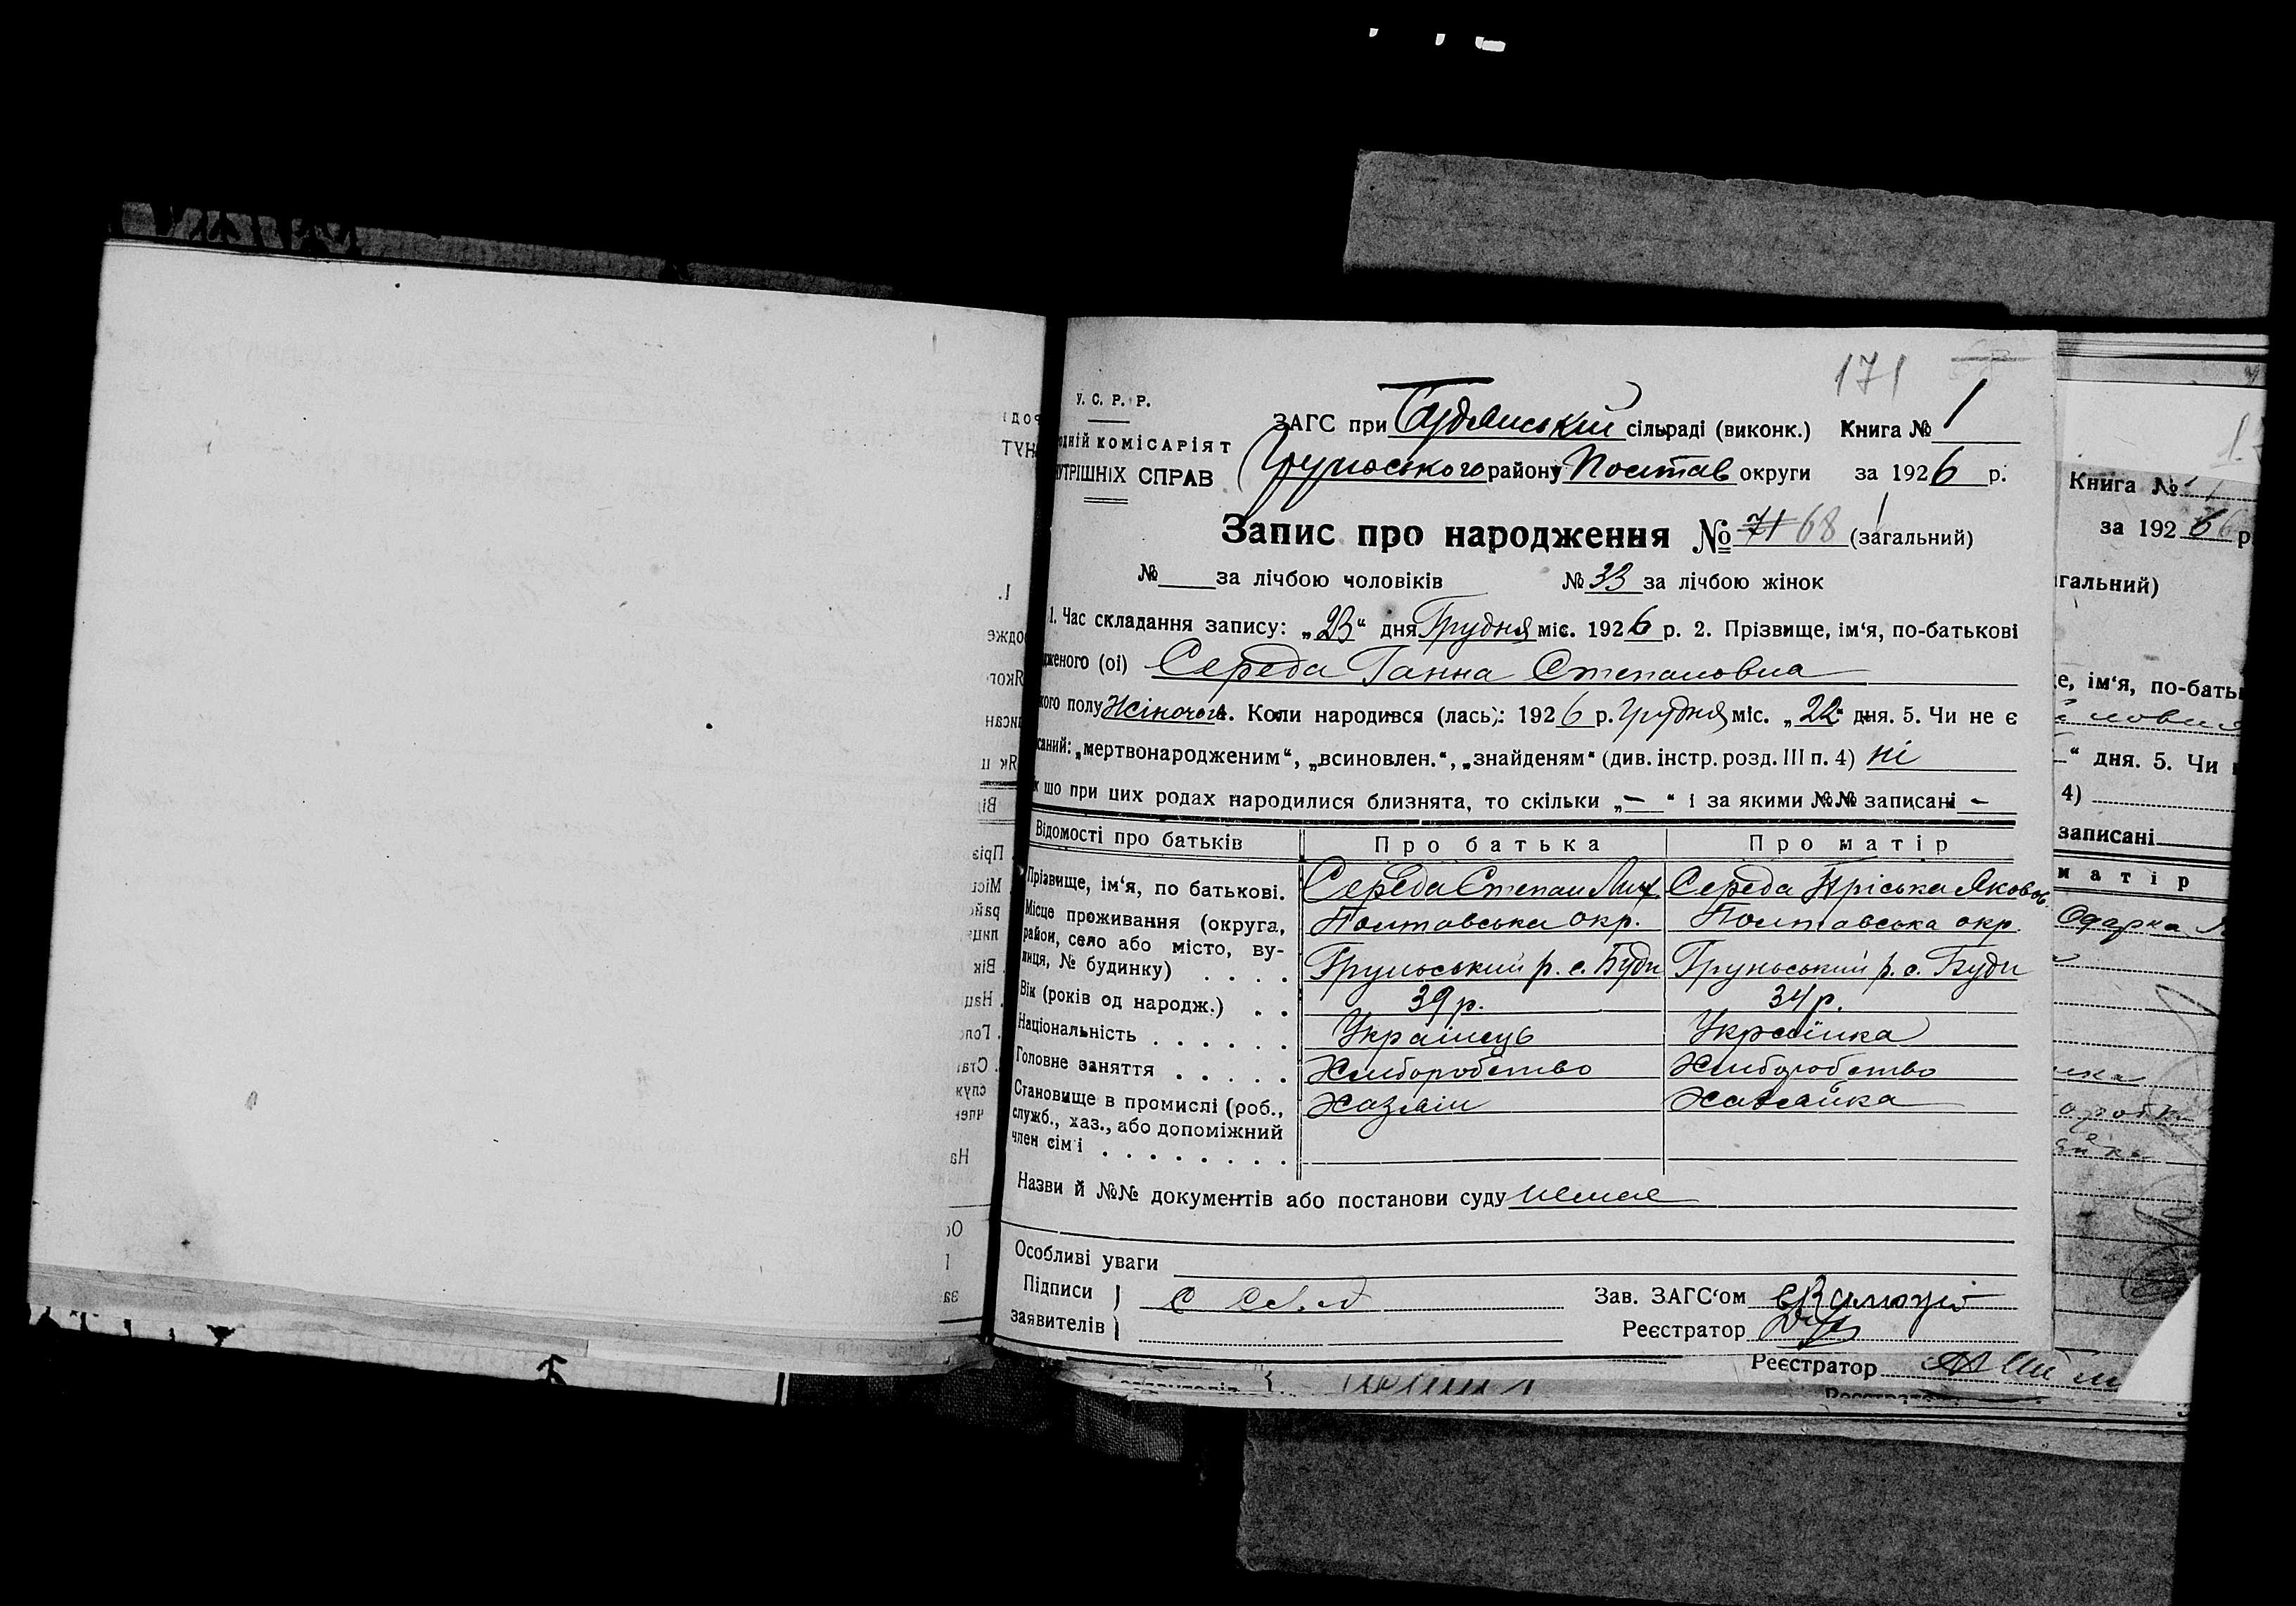 171
У. С. Р. Р.
ЗАГС при Будянській сільраді (виконк.) Книга № 1
одній комісаріят
Груньського району Полтав округи за 1926 р.
утрішніх справ
Запис про народження № 71 68 (загальний)
№ за лічбою чоловіків № 33 за лічбою жінок
1. Час складання запису: „23“ дня Грудня міс. 1926 р. 2. Прізвище, ім‘я, по-батькові
дженого (ої) Середа Ганна Степановна
кого полу Жіночого. Коли народився (лась): 1926 р. Грудня міс. „22“ дня. 5. Чи не є
саний: „мертвонародженим“, „всиновлен.“, „знайденям“ (див. інстр. розд. III п. 4) ні
к що при цих родах народилися близнята, то скільки „—“ і за якими №№ записані —
Відомості про батьків Про батька Про матір
Прізвище, ім‘я, по батькові. Середа Степан Середа Пріська Яковов.
Місце проживання (округа, Полтавська окр. Полтавська окр.
район, село або місто, ву-
лиця, № будинку) . . . . Груньський р. с. Буди Груньський р. с. Буди
Вік (років од народж.) . . 39 р. 34 р.
Національність . . . . . . Українець Українка
Головне заняття . . . . . Хліборобство Хліборобство
Становище в промислі (роб., Хазяін Хазяйка
служб., хаз., або допоміжний
член сім‘ї . . . . . . . .
Назви й №№ документів або постанови суду немае
Особливі уваги
Підписи
заявителів
Зав. ЗАГС‘ом
Реєстратор
Книга № 1
за 1926 р
гальний)
е, ім‘я, по-баты
“ дня. 5. Чи
4)
записані
матір
Одарка
Реєстратор